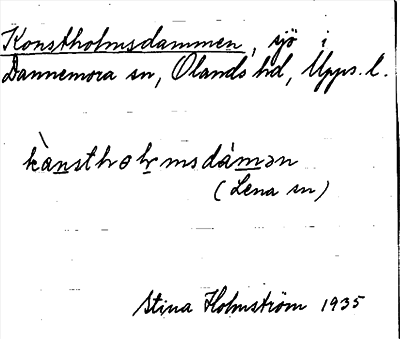 Konstholmsdammen, sjö i
Dannemora sn, Olands hd, Upps. l.
kànsthoɫmsdámən
(Lena sn)
Stina Holmström 1935